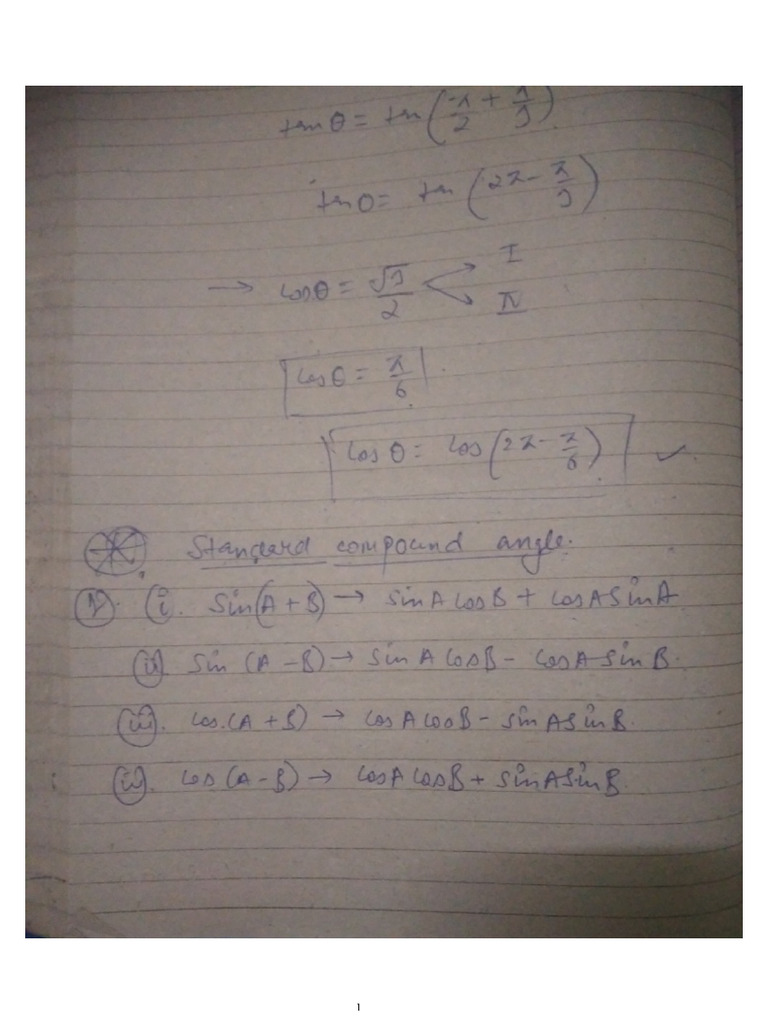 tanθ = tan(π/2 + π/3)
tanθ = tan(2π - π/3)
→ cosθ = √3/2 I
IV
cosθ = π/6
cosθ = cos(2π - π/6) ✓
Standard compound angle.
(1). (i). Sin(A + B) → sinA cosB + cosA sinA
(ii). Sin (A - B) → sinA cosB - cosA sinB.
(iii). cos.(A + B) → cosA cosB - sinA sinB.
(iv). cos (A - B) → cosA cosB + sinA sinB.
1